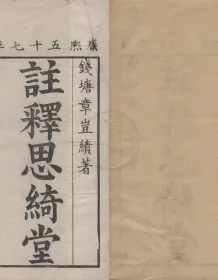 康熙五十七年
錢塘章豈績著
註釋思綺堂